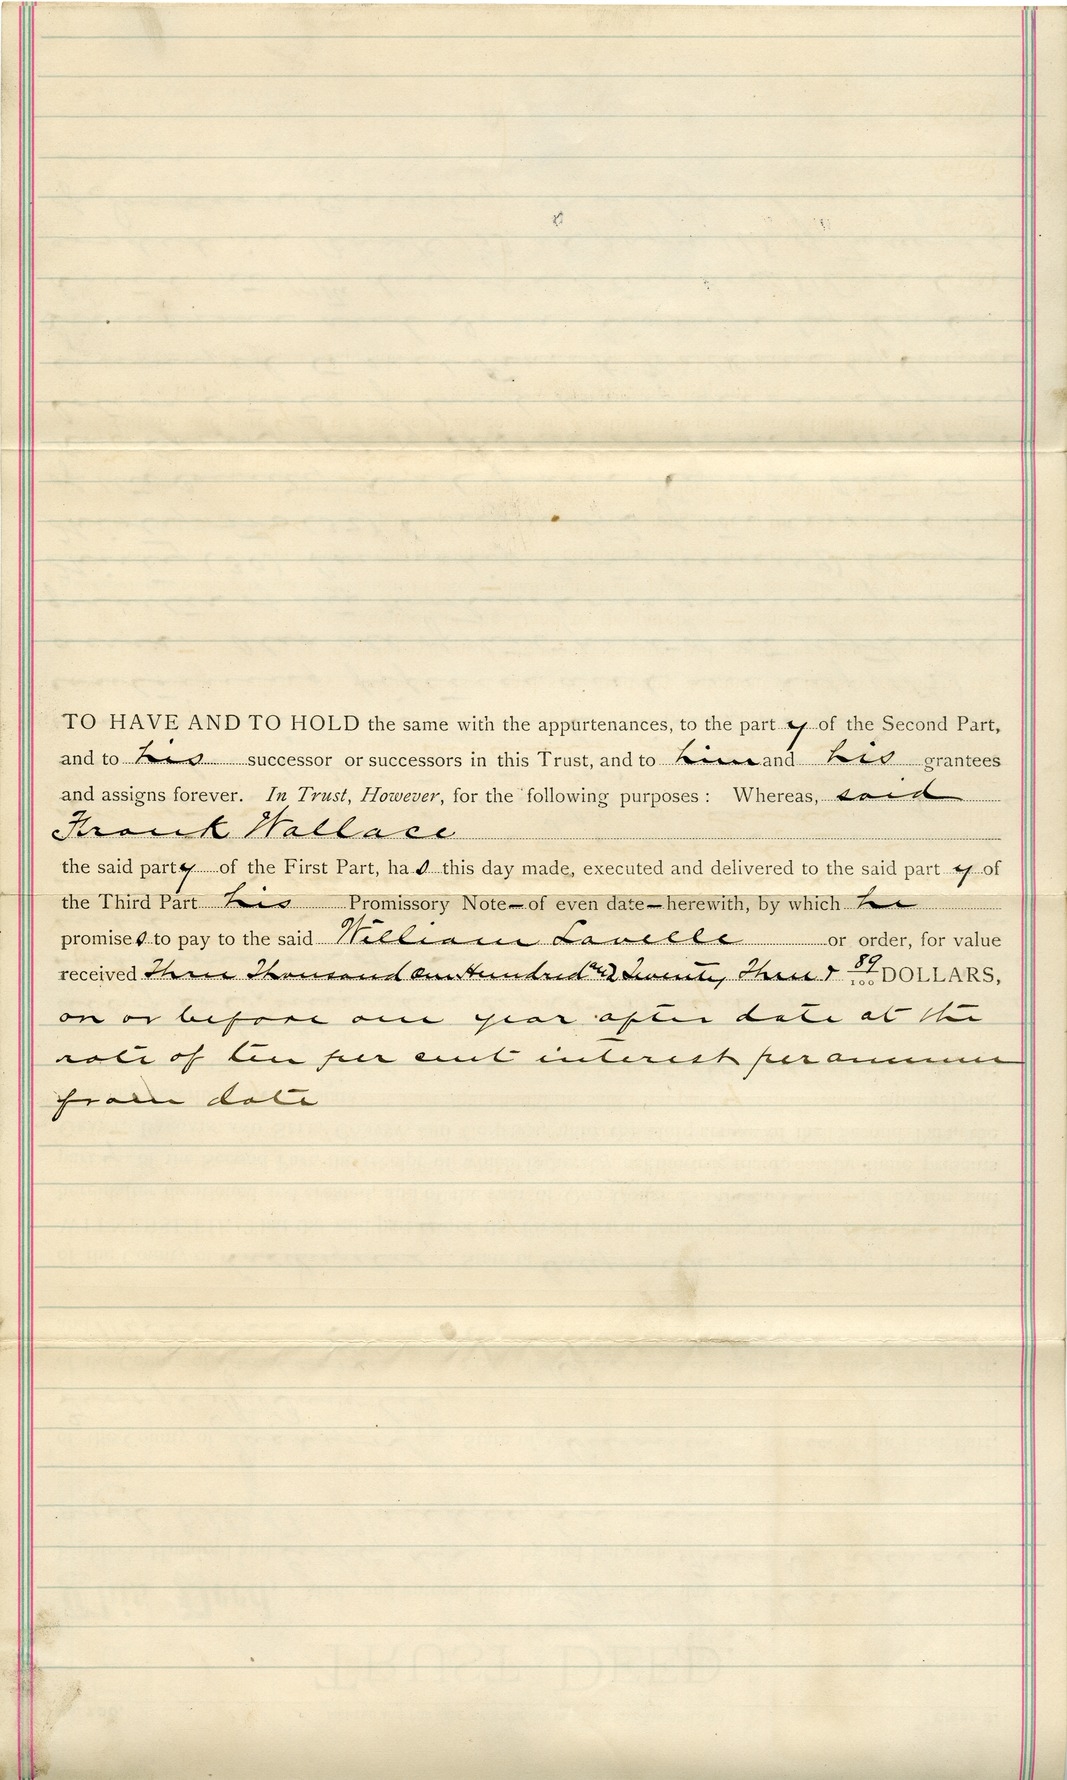 TO HAVE AND TO HOLD the same with the appurtenances, to the party of the Second Part,
and to his successor or successors in this Trust, and to him and his grantees
and assigns forever. In Trust, However, for the following purposes: Whereas, said
Frank Wallace
the said party of the First Part, has this day made, executed and delivered to the said party of
the Third Part his Promissory Note—of even date—herewith, by which he
promises to pay to the said William Lavelle or order, for value
received Three Thousand one Hundred and Twenty Three & 89/100 DOLLARS,
on or before one year after date at the
rate of ten per cent interest per annum
from date
TRUST DEED